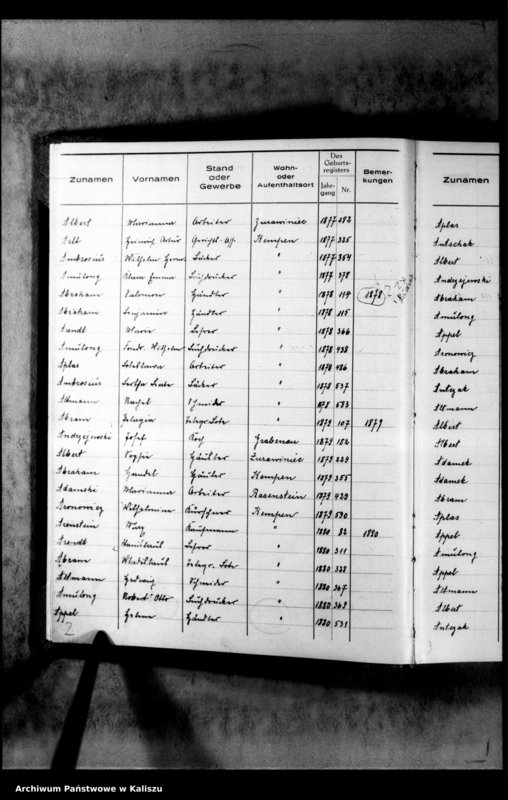 Zunamen Vornamen Stand oder Gewerbe Wohn- oder Aufenthaltsort Des Geburtsregisters Jahrgang Nr. Bemerkungen Zunamen
Albert Marianna Arbeiter Zurawiniec 1877 282
Arlt Heinrich Kempen 1877 325
Ambrosius Wilhelm Bäcker " 1877 354
Amulong Clara Emma Buchdrucker " 1877 378
Abraham Salomon Händler " 1878 114 1878
Abraham Benjamin Händler " 1878 115
Arendt Marie Lehrer " 1878 366
Amulong Friedr. Wilhelm Buchdrucker " 1878 438
Aplas Arbeiter " 1878 486
Ambrosius Bertha Bäcker " 1878 537
Altmann Rachel Schneider " 878 583
Abram Pelagia " 1879 107 1879
Andrzejewski Josef Koch Grabenau 1879 182
Albert Häusler Zurawiniec 1879 229
Abraham Händler Kempen 1879 255
Adamski Marianna Arbeiter Rasenstein 1879 429
Aronowicz Wilhelmine Kürschner Kempen 1879 530
Arenstein Kaufmann " 1880 82 1880
Arendt Lehrer " 1880 311
Abram Wladislaus " 1880 328
Altmann Hedwig Schneider " 1880 367
Amulong Robert Otto Buchdrucker " 1880 369
Appel Händler " 1880 531
2
Aplas
Antschak
Albert
Andrzejewski
Abraham
Amulong
Appel
Aronowicz
Abraham
Antczak
Altmann
Albert
Albert
Adamek
Adamek
Abram
Aplas
Appel
Amulong
Appel
Altmann
Albert
Antczak
Archiwum Państwowe w Kaliszu